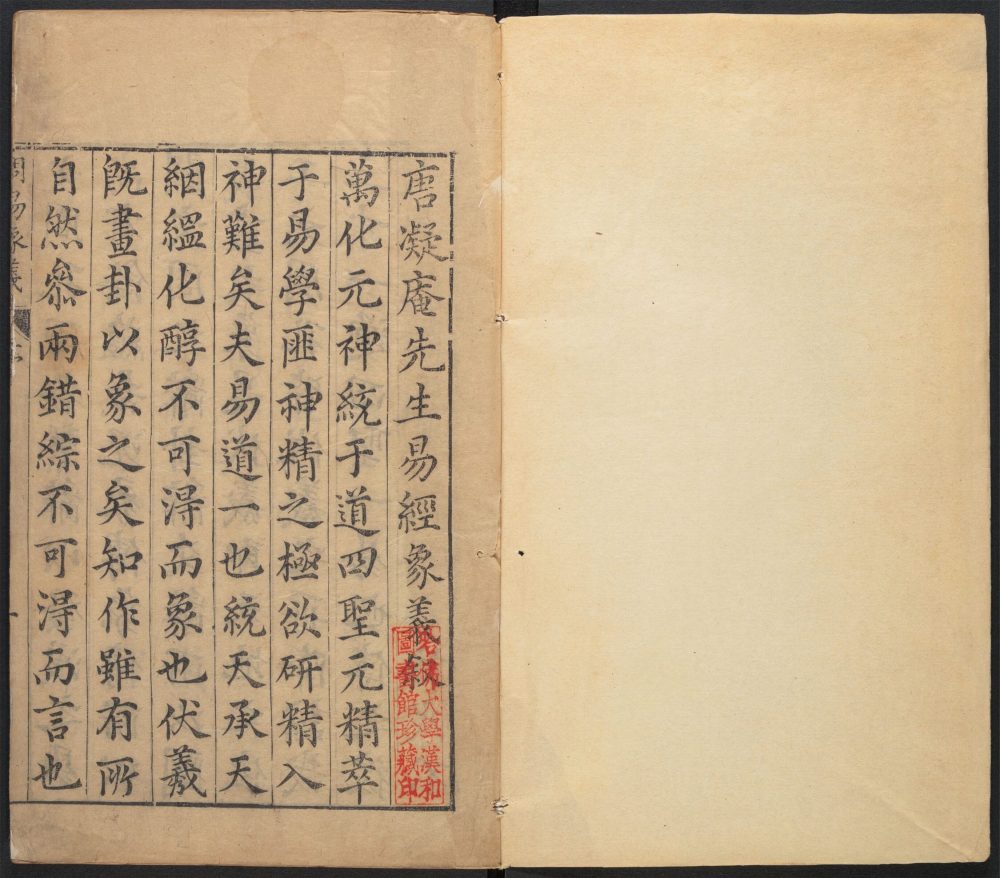 唐凝庵先生易經象義敘
萬化元神統于道四聖元精萃
于易學匪神精之極欲研精入
神難矣夫易道一也統天承天
絪縕化醇不可淂而象也伏羲
旣畫卦以象之矣知作雖有所
自然叅兩錯綜不可淂而言也
周易象義
大學漢和
圖書館珍藏印